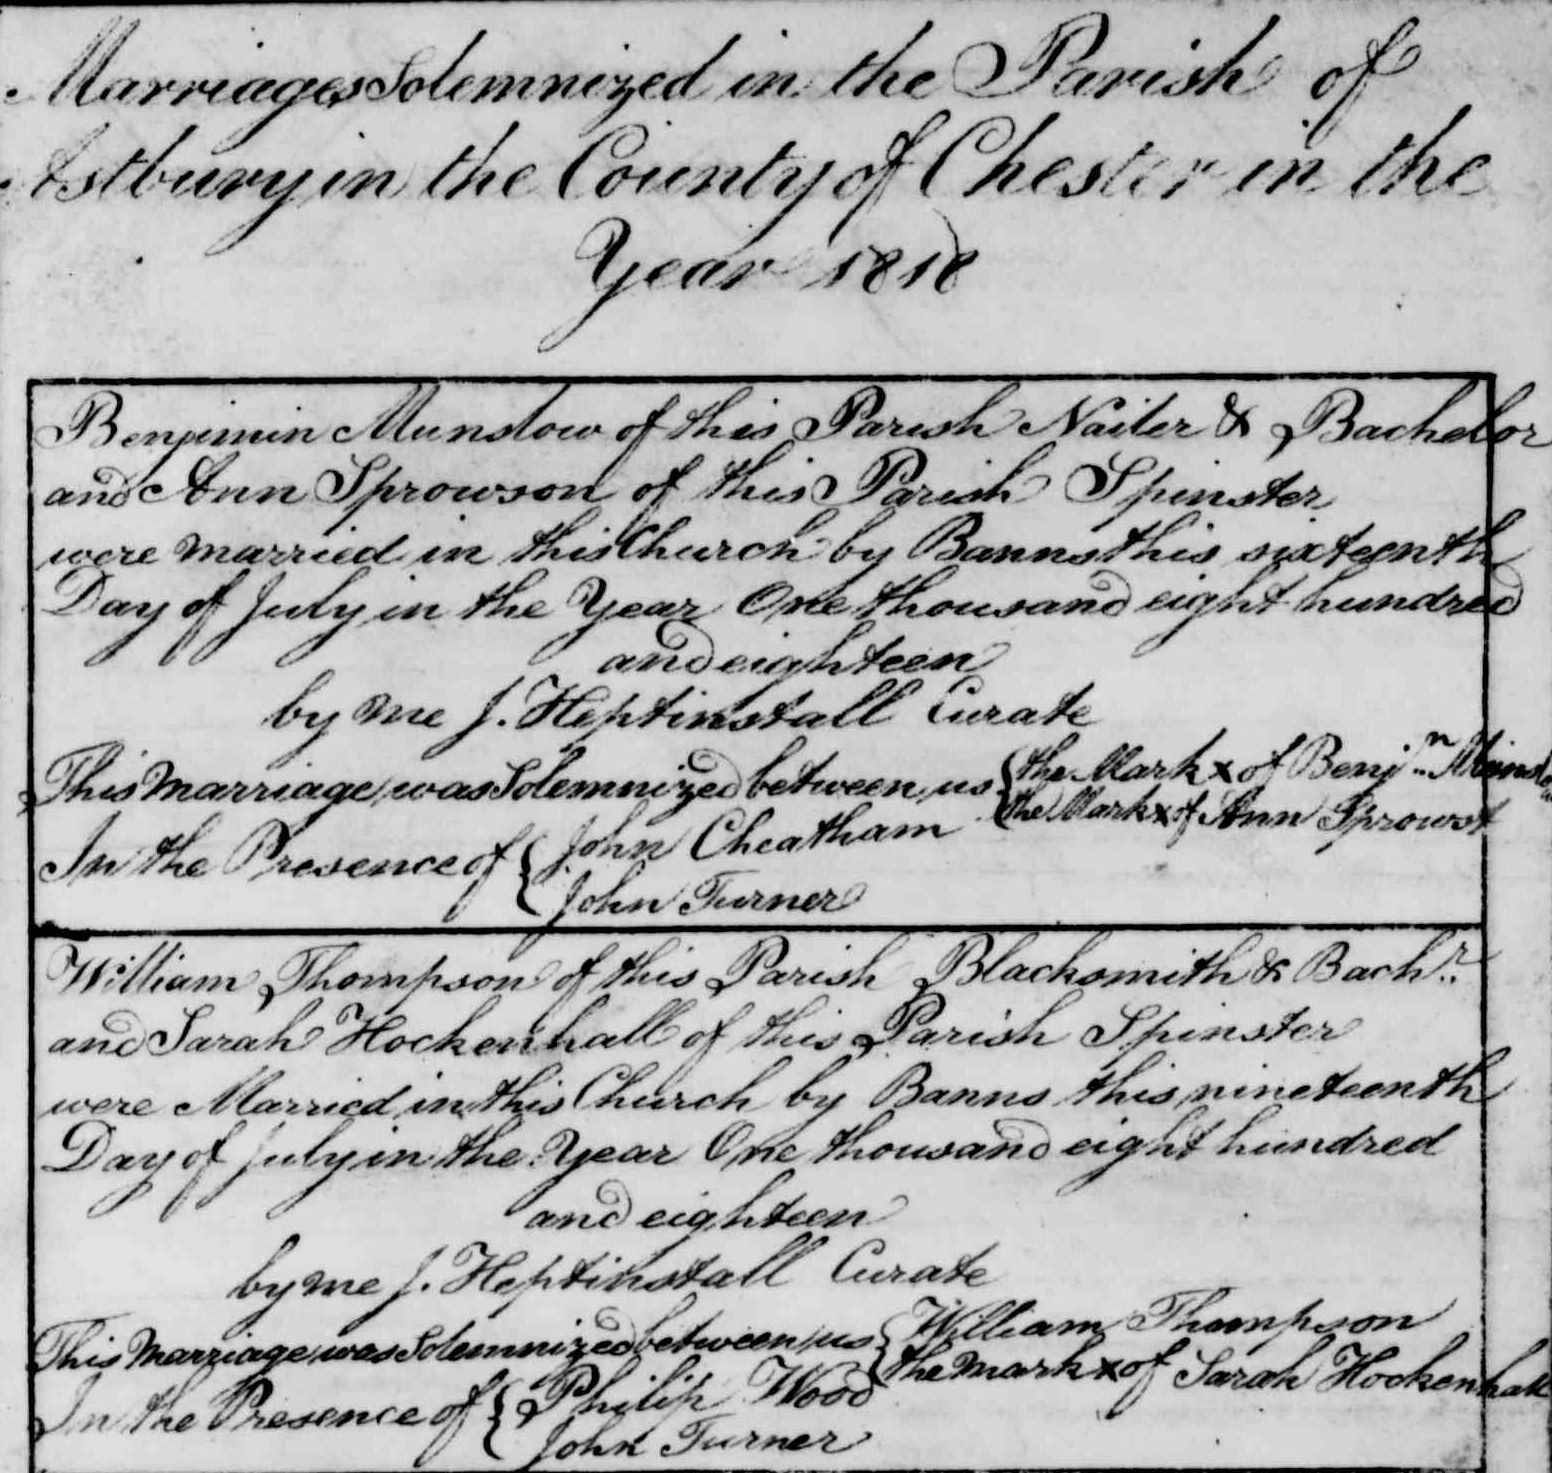 Marriages Solemnized in the Parish of
Astbury in the County of Chester in the
Year 1818
Benjimin Munslow of this Parish Nailer & Bachelor
and Ann Sprowson of this Parish Spinster
were married in this Church by Banns this sixteenth
Day of July in the Year One thousand eight hundred
and eighteen
by me J. Heptinstall Curate
This Marriage was Solemnized between us { the Mark x of Benjn Munslow
the Mark x of Ann Sprowst
In the Presence of { John Cheatham
John Turner
William Thompson of this Parish Blacksmith & Bachr
and Sarah Hockenhall of this Parish Spinster
were Married in this Church by Banns this nineteenth
Day of July in the Year One thousand eight hundred
and eighteen
by me J. Heptinstall Curate
This Marriage was Solemnized between us { William Thompson
the mark x of Sarah Hockenhall
In the Presence of { Philip Wood
John Turner